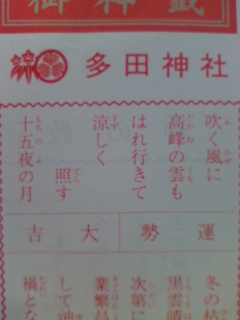 御神籤
多田神社
吹く風に
高峰の雲も
はれ行きて
涼しく
照す
十五夜の月
運勢
大吉
冬の枯
黒雲晴
次第に
業繁昌
して油
禍とな